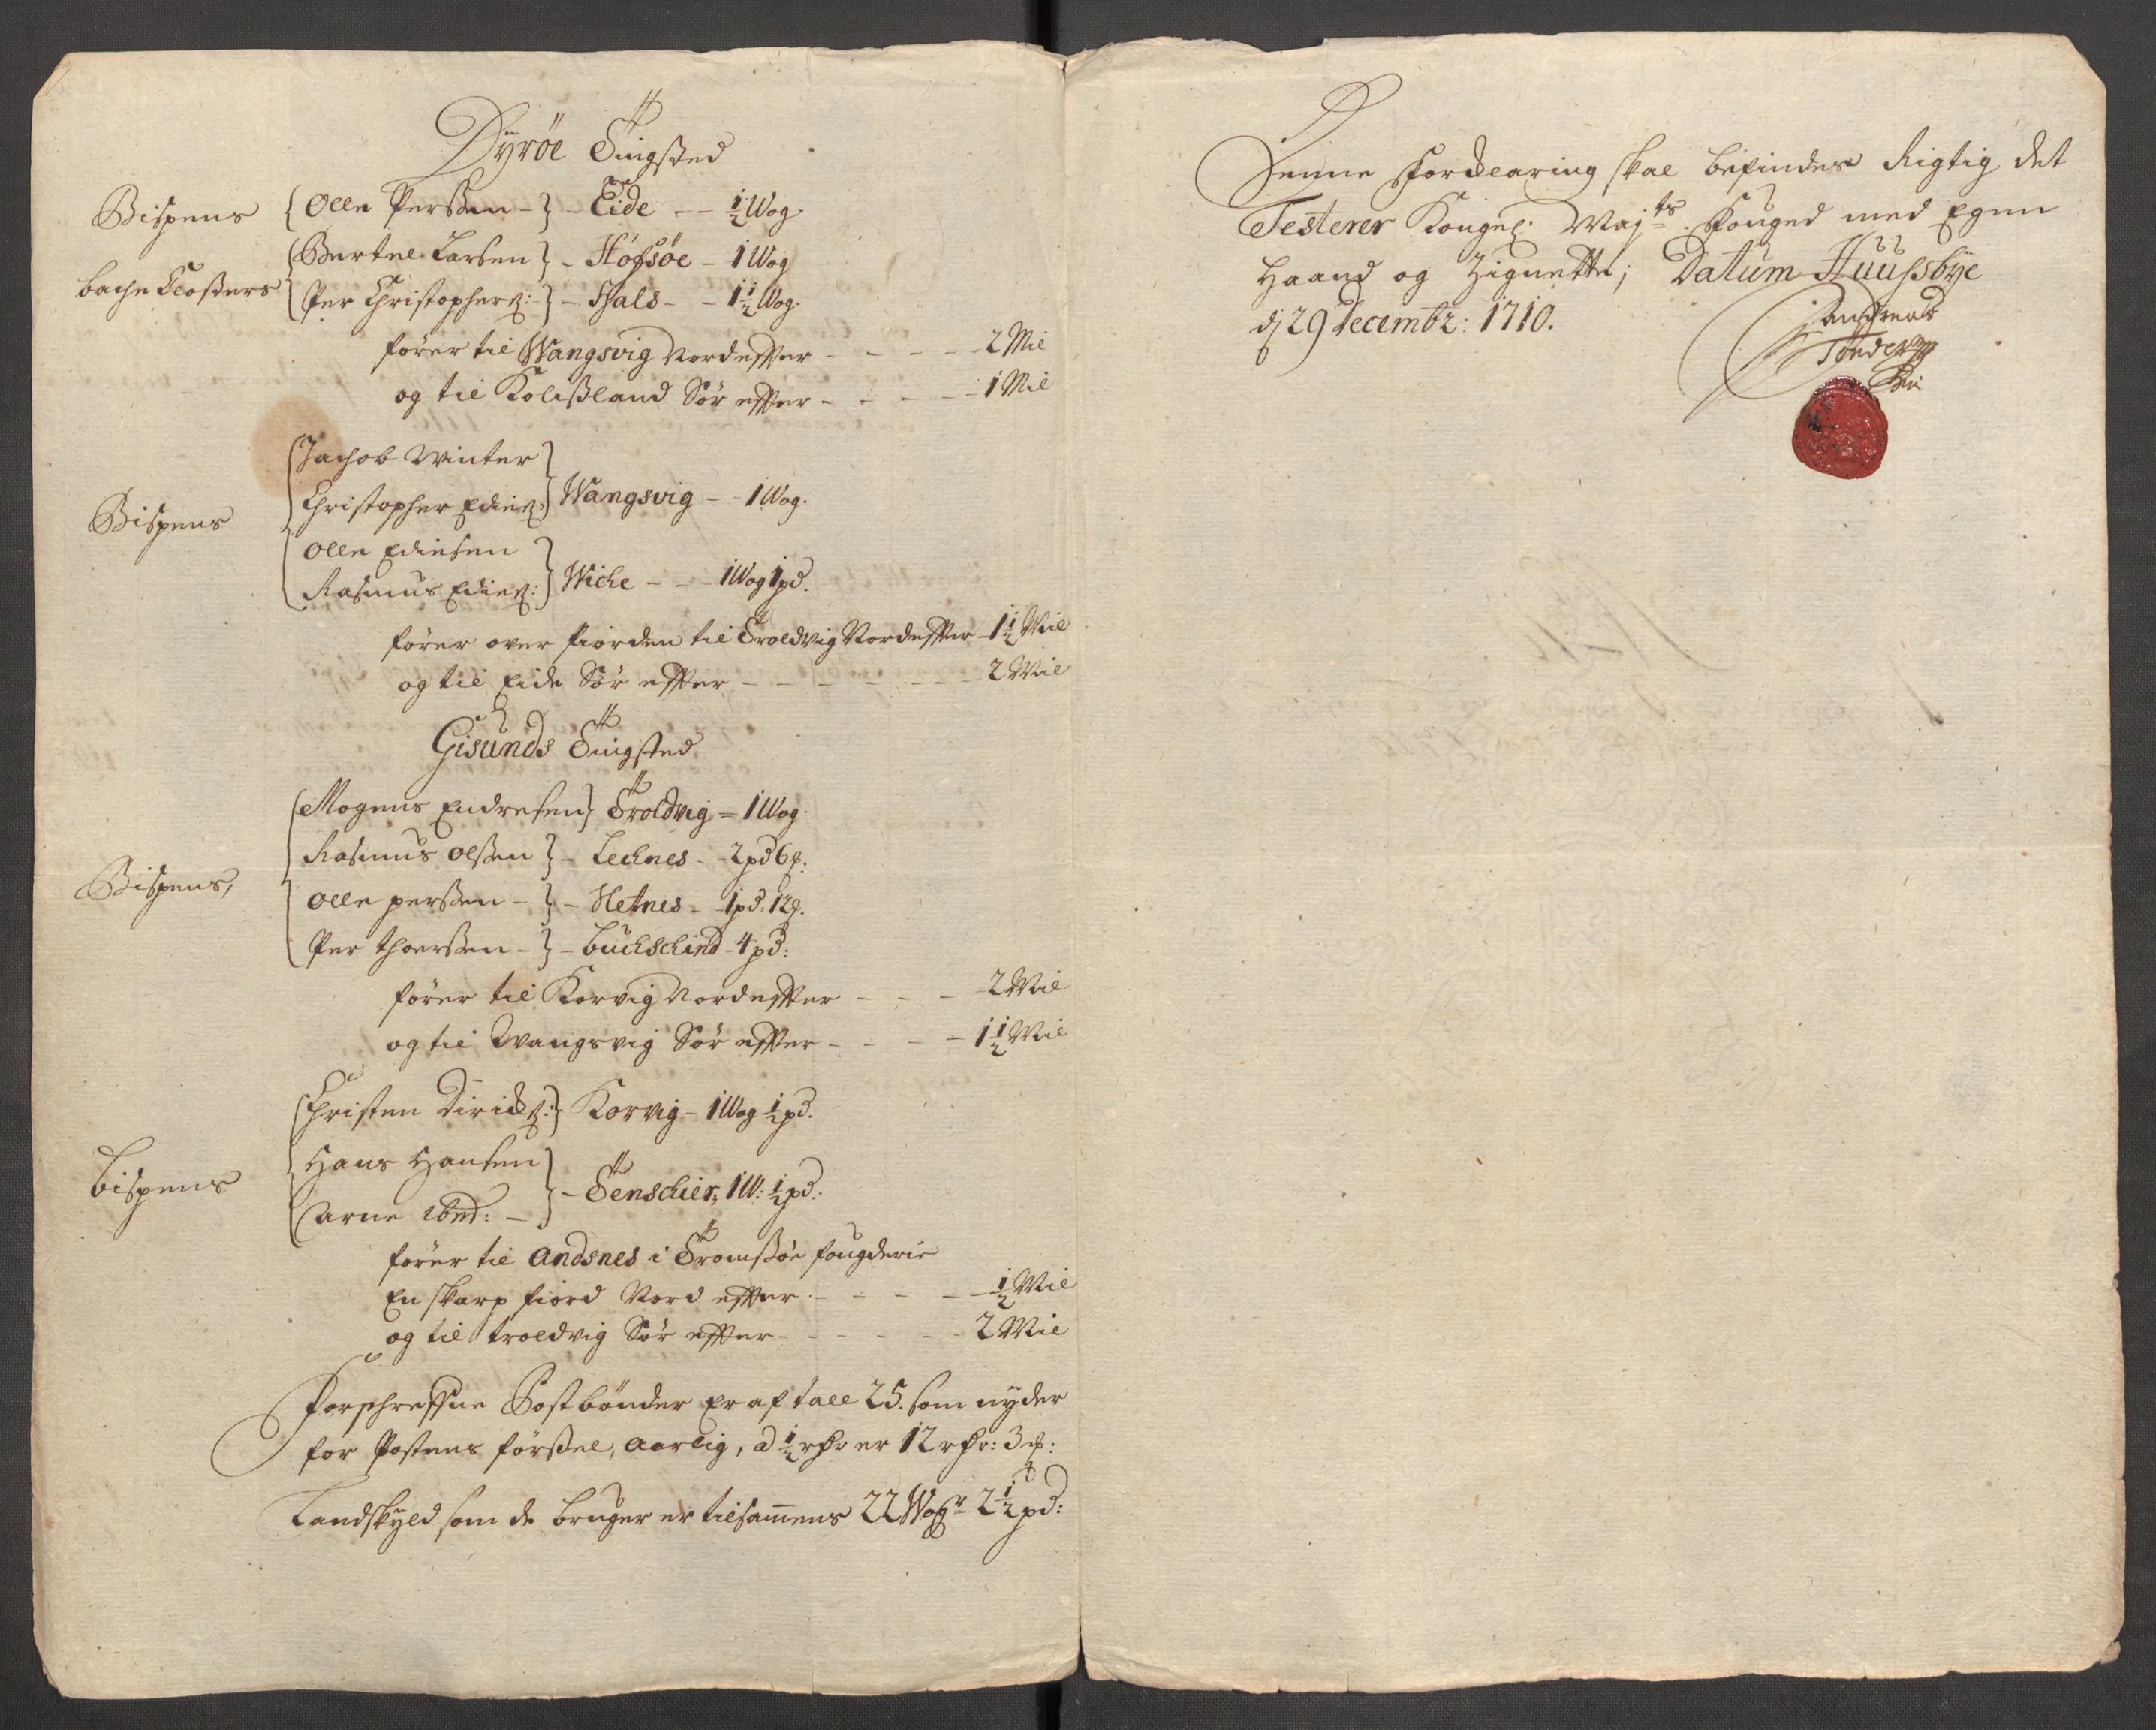 Dyrøe Tingsted
Bispens { Olle Perssen - } - Eide - - ½ Wog
{ Bertel Larsen } - Høfsøe - 1 Wog
bache Closters { Per Christopherß: } - Hals - - 1½ Wog.
fører til Wangsvig Nordeffter - - - - 2 Mil
og til Kolißland Sør effter - - - - 1 Mil
{ Jachob Winter }
Bispens { Christopher Edieß: } Wangsvig - - 1 Wog.
{ Olle Ediesen }
{ Rasmus Edieß: } Wiche - - - 1 Wog 1 pd.
fører over fiorden til Troldvig Nordeffter - 1½ Mil
og til Eide Sør effter - - - - - - - 2 Mil
Gisunds Tingsted
{ Mogens Endresen } Troldvig = 1 Wog.
{ Rasmus Olßen } - Lechnes - - 2 pd 6 ₰.
Bispens, { Olle perßen - } - Hetnes - - 1 pd: 12 ₰.
{ Per thoerßen - } - buchschind - 4 pd:
fører til Korvig Nordeffter - - - 2 Mil
og til Wangsvig Sør effter - - - - 1½ Mil
{ Christen Dirichß: } Korvig - 1 Wog ½ pd.
{ Hans Hansen }
Bispens { Arne ibid: - } - Tenschier, 1 W: ½ pd:
fører til Andsnes i Tromßøe fougderie
En skarp fiord Nord effter - - - - - ½ Mil
og til troldvig Sør effter - - - - - 2 Mil
Forschreffne Postbønder Er af tall 25. som nyder
for Postens førßel, Aarlig, a ½ rdr er 12 rdr: 3 ₰:
Landskyld som de bruger er tilsamens 22 Wogr 2½ pd:
Denne Forclaring skal befindes Rigtig det
Testerer Kongel: Majts. Fouged med Egen
Haand og Zignette; Datum Huusbye
dj 29 Decembr: 1710.
Andreas
Tønder